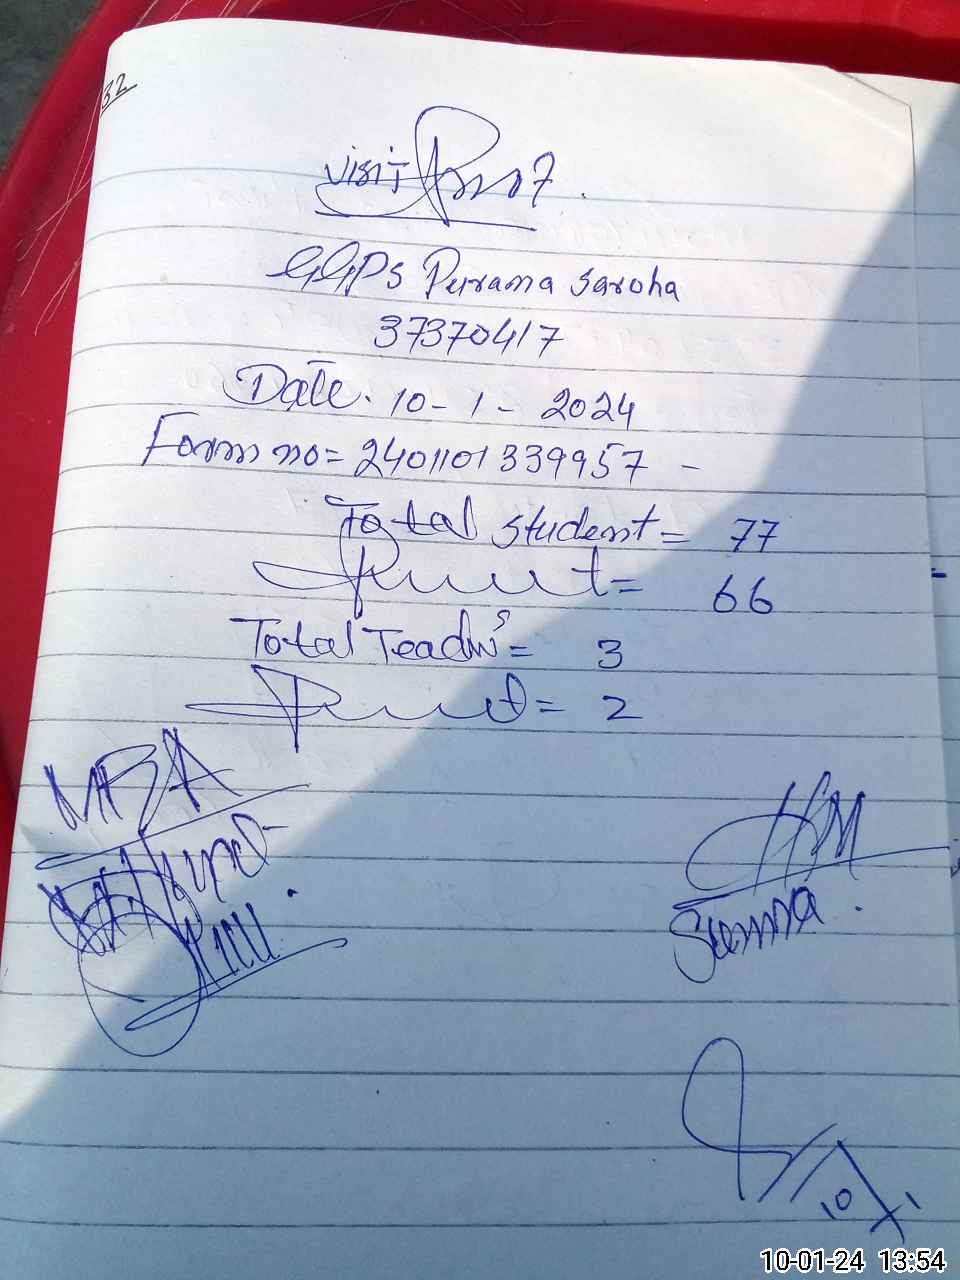 32
visit
GGPS Purana Saroha
37370417
Date. 10-1-2024
Form no= 2401101339957 -
Total student= 77
= 66
Total Teachers= 3
= 2
MEA
HM
Samra.
10
1
10-01-24 13:54